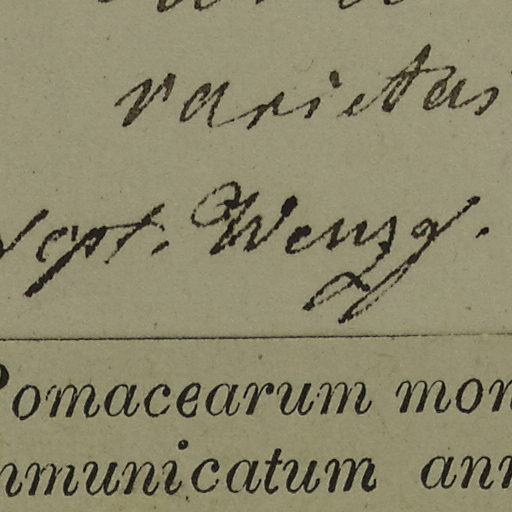 varietas
Wenzg.
Pomacearum mon
mmunicatum ann